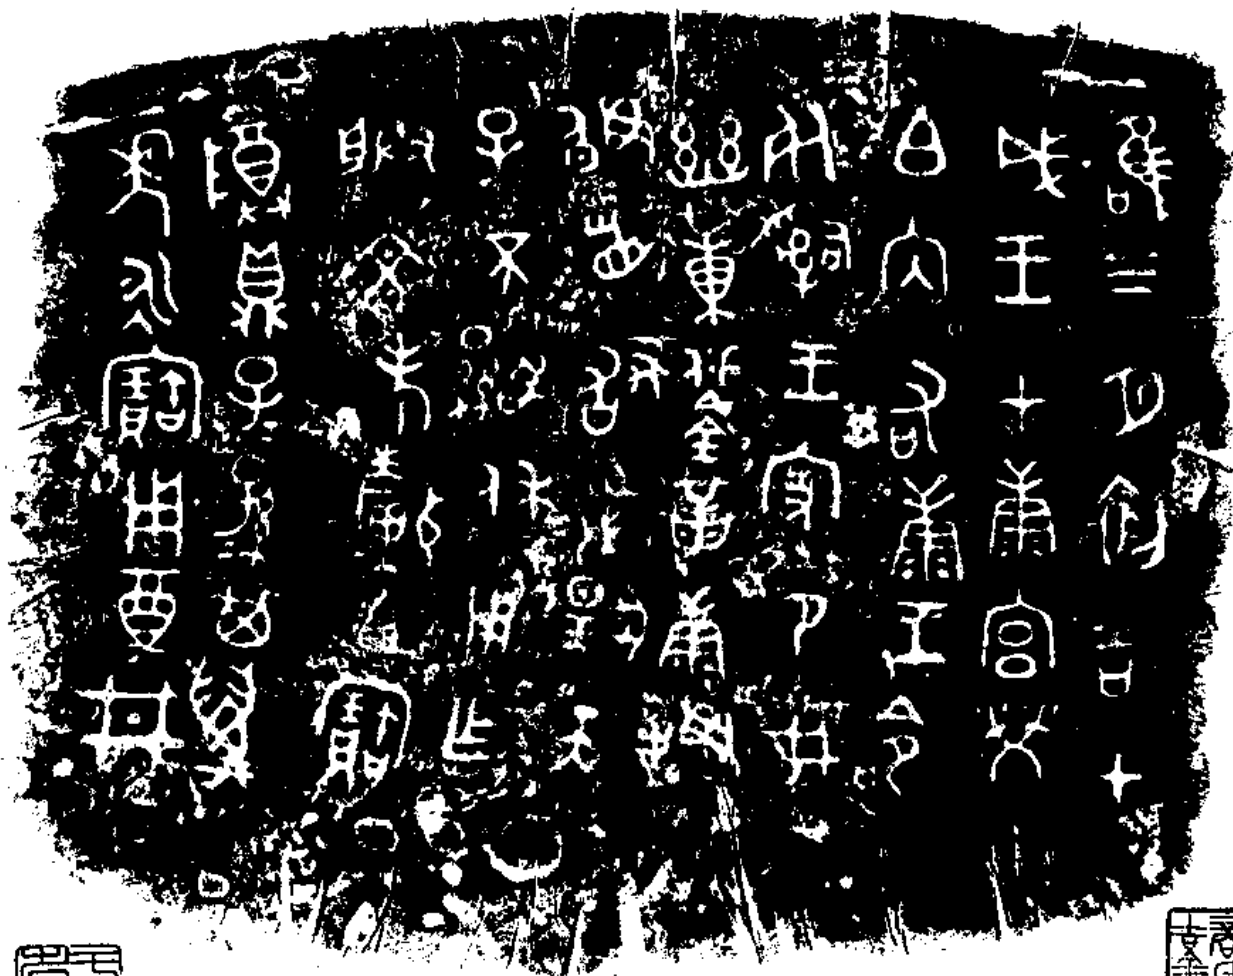 唯三月初吉甲
戌王才康宮𤇾
白內右康王令
死𤔲王家令女
幽黃鋚革康拜
𩒨首敢對揚天
子不顯休用乍
朕文考釐白寶
𬯚鼎子孫其萬
年永寶用奠井